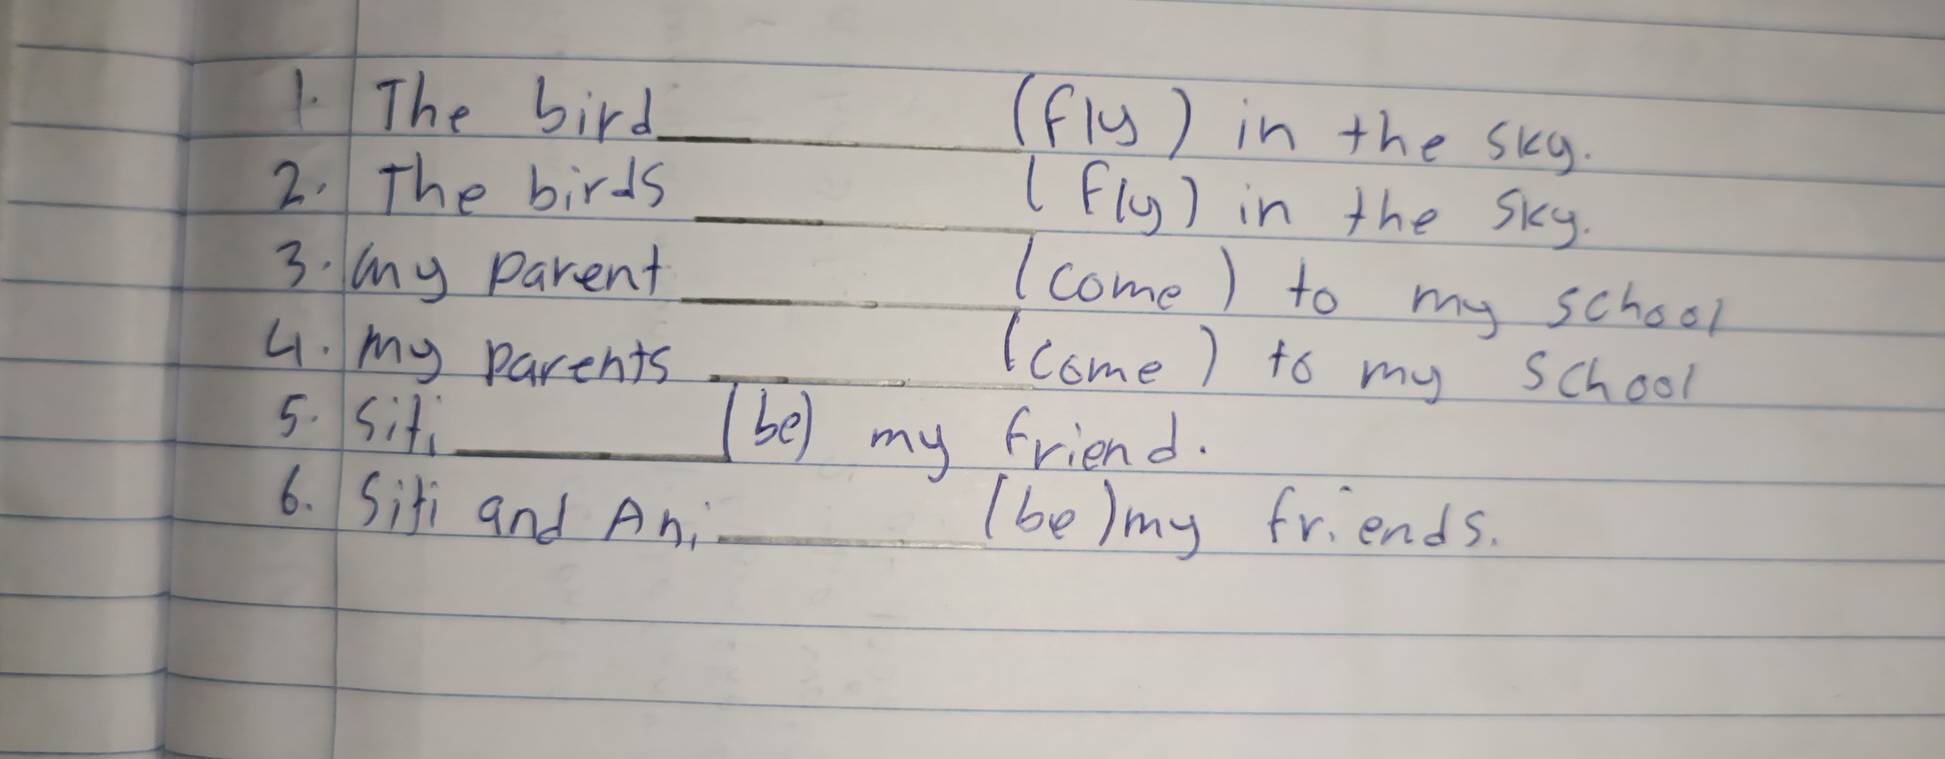 1. The bird ________ (fly) in the sky.
2. The birds ________ (fly) in the sky.
3. my parent ________ (come) to my school
4. my parents ________ (come) to my school
5. Siti ________ (be) my friend.
6. Siti and Ani ________ (be) my friends.